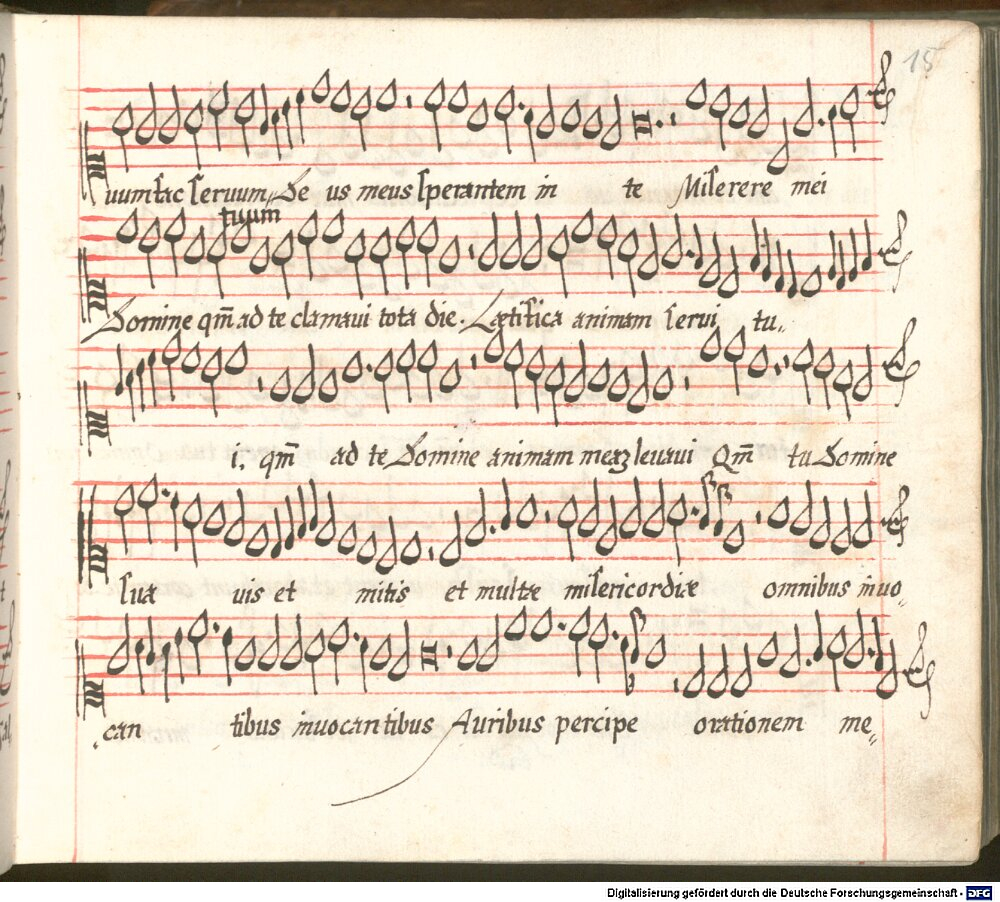 15
uum fac seruum,, De us meus sperantem in te Miserere mei
tuum
Domine qm̃ ad te clamaui tota die. Lætifica animam serui tu,,
i. qm̃ ad te Domine animam meaȝ leuaui Qm̃ tu Domine
suauis et mitis et multæ misericordiæ omnibus inuo,,
,,can tibus inuocantibus Auribus percipe orationem me,,
Digitalisierung gefördert durch die Deutsche Forschungsgemeinschaft - DFG